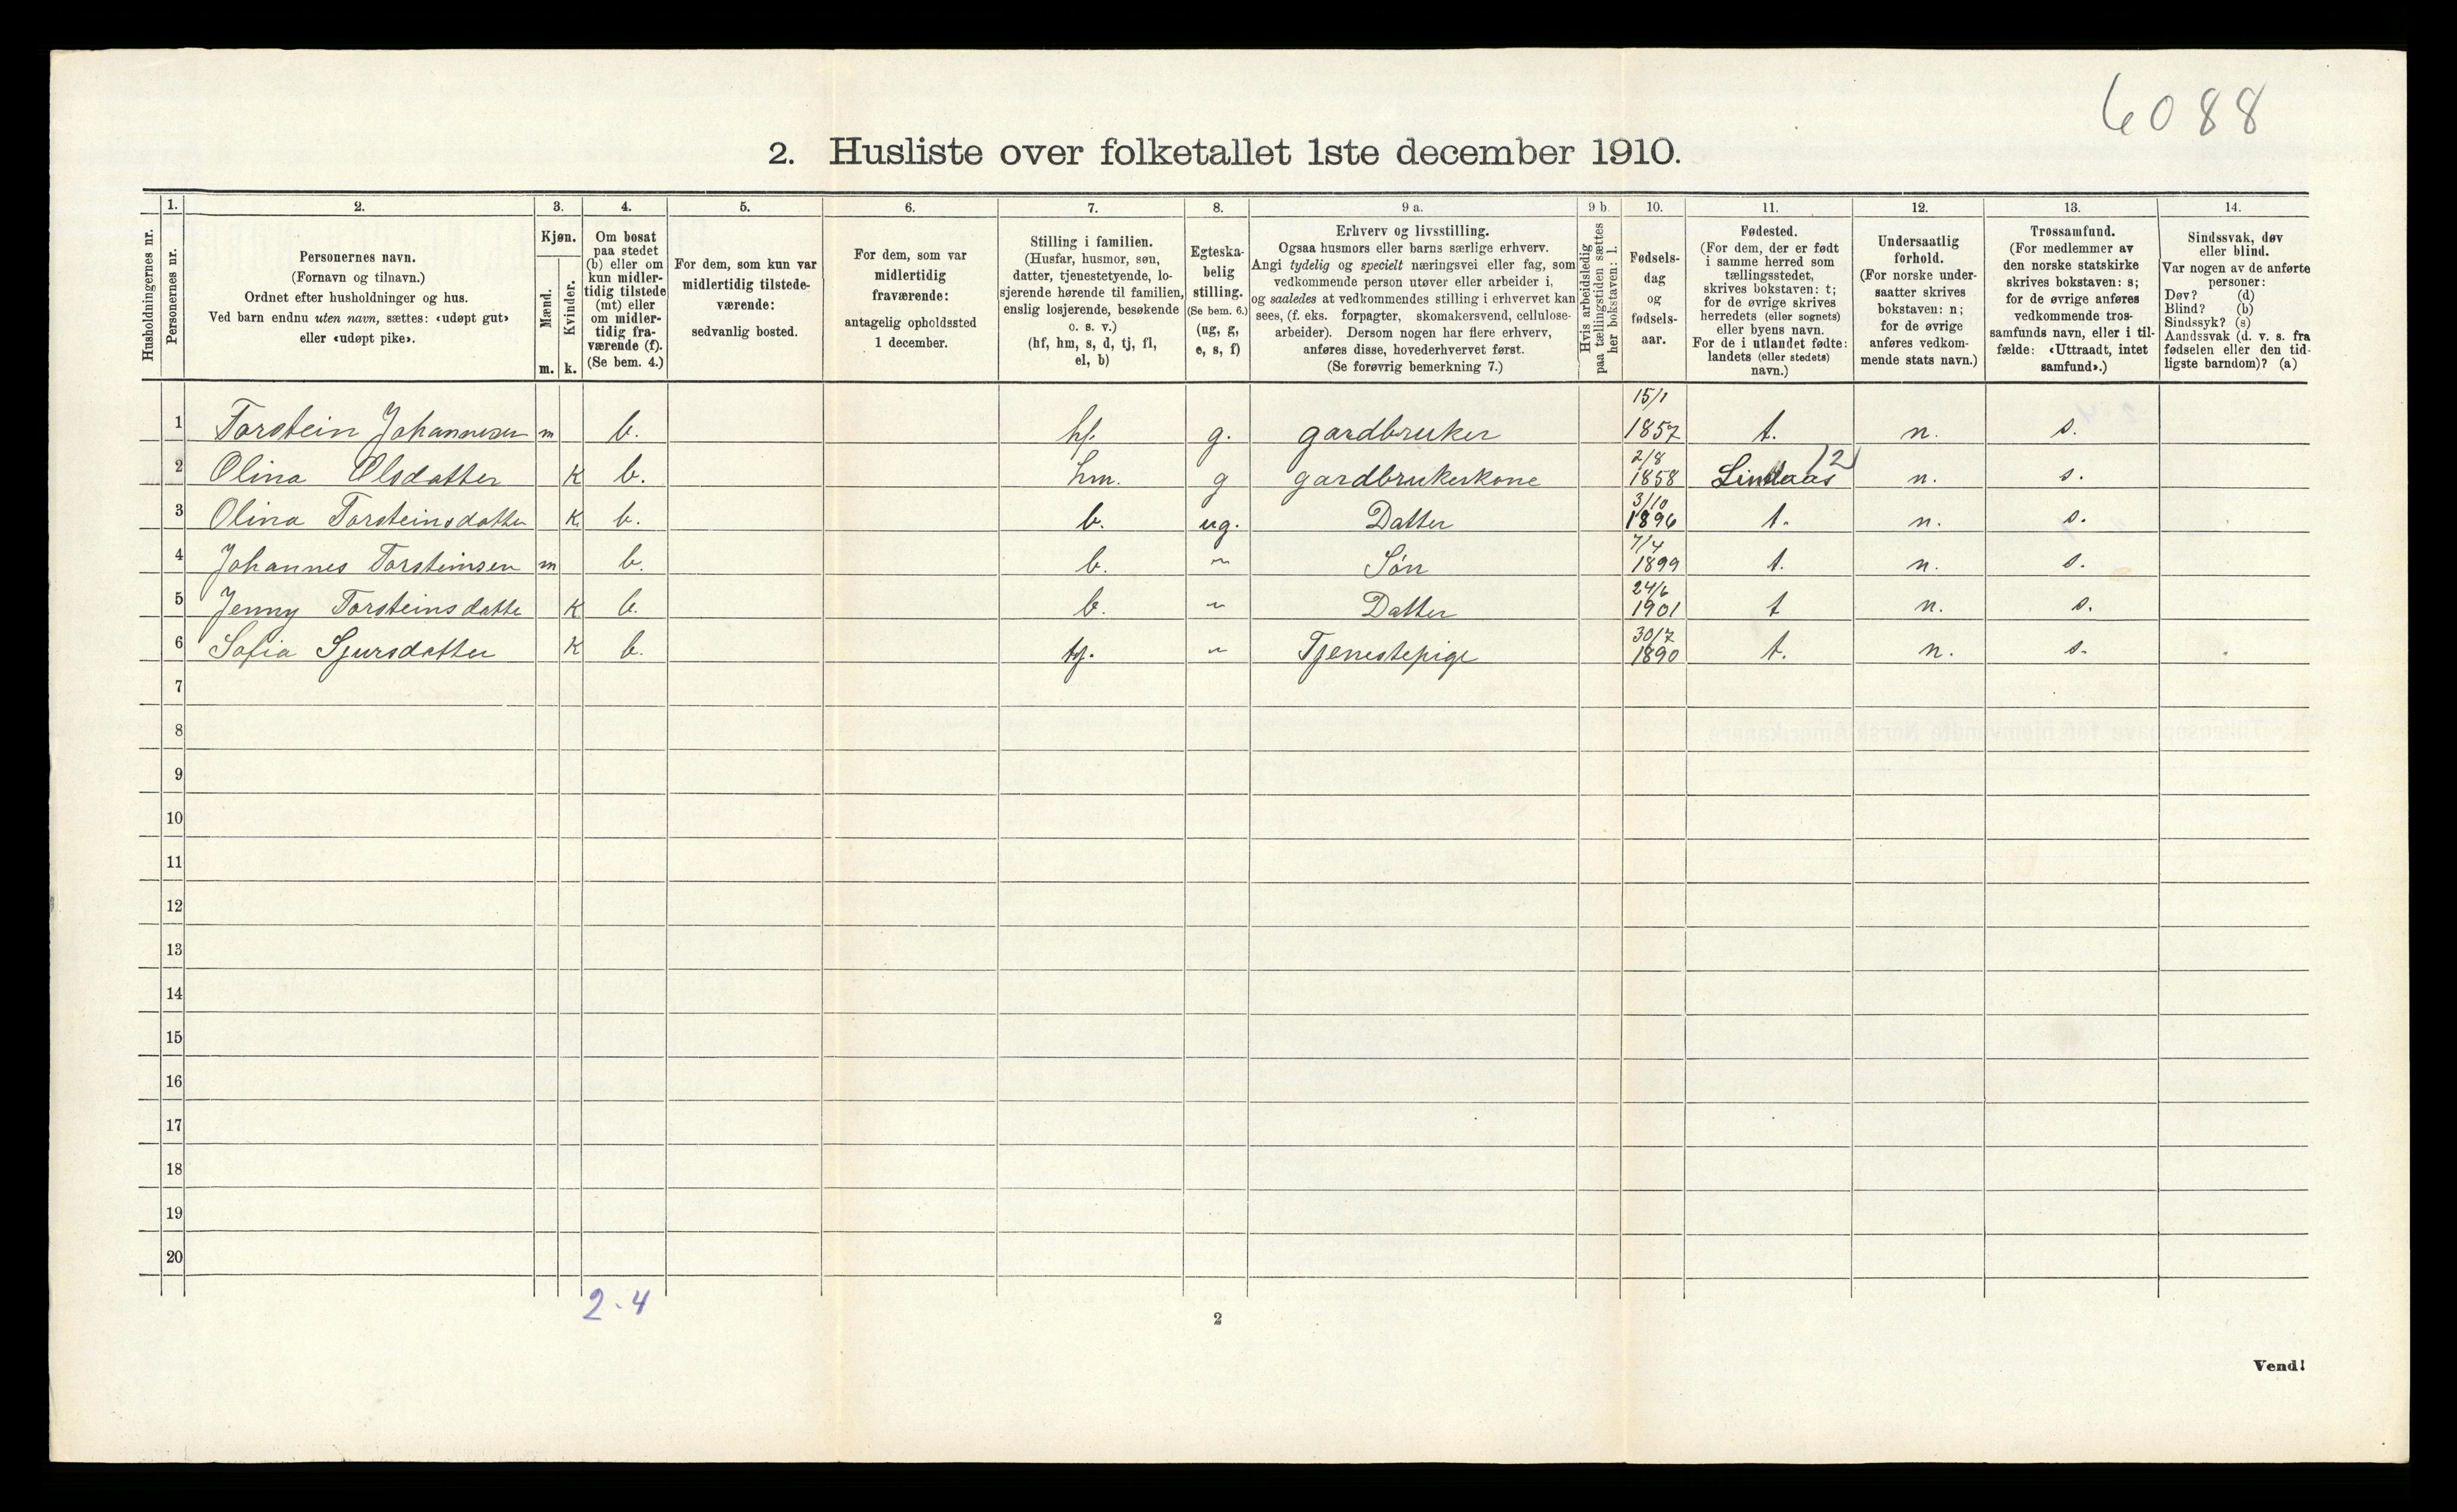 6088
2. Husliste over folketallet 1ste december 1910.
Husholdningernes nr.
1.
Personernes nr.
2.
Personernes navn.
(Fornavn og tilnavn.)
Ordnet efter husholdninger og hus.
Ved barn endnu uten navn, sættes: «udøpt gut»
eller «udøpt pike».
3.
Kjøn.
Mænd.
Kvinder.
m. k.
4.
Om bosat
paa stedet
(b) eller om
kun midler-
tidig tilstede
(mt) eller
om midler-
tidig fra-
værende (f).
(Se bem. 4.)
5.
For dem, som kun var
midlertidig tilstede-
værende:
sedvanlig bosted.
6.
For dem, som var
midlertidig
fraværende:
antagelig opholdssted
1 december.
7.
Stilling i familien.
(Husfar, husmor, søn,
datter, tjenestetyende, lo-
sjerende hørende til familien,
enslig losjerende, besøkende
o. s. v.)
(hf, hm, s, d, tj, fl,
el, b)
8.
Egteska-
belig
stilling.
(Se bem. 6.)
(ug, g,
e, s, f)
9 a.
Erhverv og livsstilling.
Ogsaa husmors eller barns særlige erhverv.
Angi tydelig og specielt næringsvei eller fag, som
vedkommende person utøver eller arbeider i,
og saaledes at vedkommendes stilling i erhvervet kan
sees, (f. eks. forpagter, skomakersvend, cellulose-
arbeider). Dersom nogen har flere erhverv,
anføres disse, hovederhvervet først.
(Se forøvrig bemerkning 7.)
9 b.
Hvis arbeidsledig
paa tællingstiden sættes
her bokstaven: l.
10.
Fødsels-
dag
og
fødsels-
aar.
11.
Fødested.
(For dem, der er født
i samme herred som
tællingsstedet,
skrives bokstaven: t;
for de øvrige skrives
herredets (eller sognets)
eller byens navn.
For de i utlandet fødte:
landets (eller stedets)
navn.)
12.
Undersaatlig
forhold.
(For norske under-
saatter skrives
bokstaven: n;
for de øvrige
anføres vedkom-
mende stats navn.)
13.
Trossamfund.
(For medlemmer av
den norske statskirke
skrives bokstaven: s;
for de øvrige anføres
vedkommende tros-
samfunds navn, eller i til-
fælde: «Uttraadt, intet
samfund».)
14.
Sindssvak, døv
eller blind.
Var nogen av de anførte
personer:
Døv? (d)
Blind? (b)
Sindssyk? (s)
Aandssvak (d. v. s. fra
fødselen eller den tid-
ligste barndom)? (a)
1 Torstein Johannesen m b. hf. g. gardbruker 15/1 1857 t. n. s.
2 Olina Olsdatter K b. hm. g gardbrukerkone 2/8 1858 Lindaas 12) n. s.
3 Olina Torsteinsdatter K. b. b. ug. Datter 3/10 1896 t. n. s.
4 Johannes Torsteinsen m b. b. " Søn 7/4 1899 t. n. s.
5 Jenny Torsteinsdatte K b. b. " Datter 24/6 1901 t n. s.
6 Sofia Sjursdatter K b. tj. " Tjenestepige 30/7 1890 t. n. s.
7
8
9
10
11
12
13
14
15
16
17
18
19
20
2.4
2
Vend!